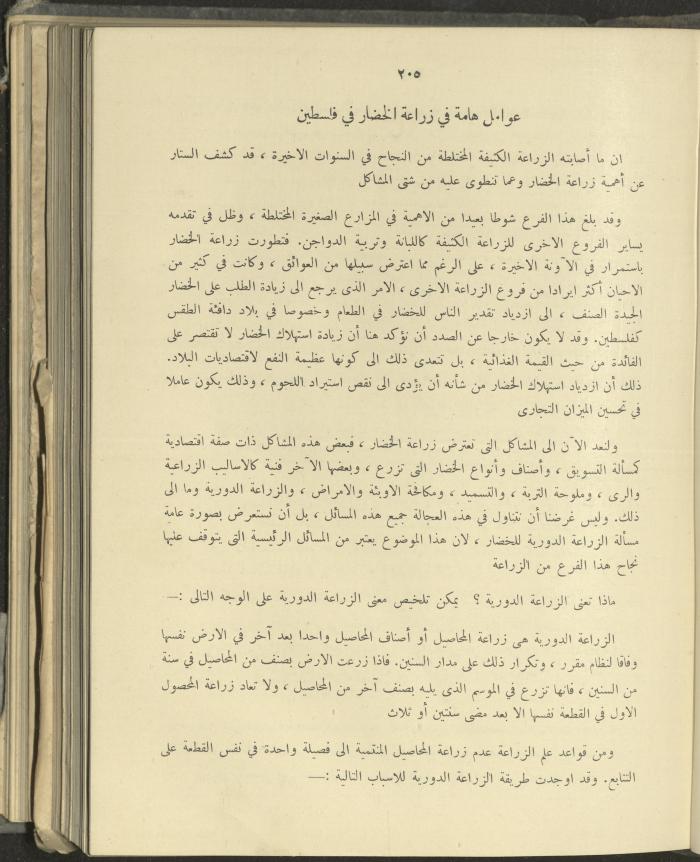 ٢٠٥
عوامل هامة في زراعة الخضار في فلسطين
ان ما أصابته الزراعة الكثيفة المختلطة من النجاح في السنوات الاخيرة ، قد كشف الستار
عن أهمية زراعة الخضار وعما تنطوى عليه من شتى المشاكل
وقد بلغ هذا الفرع شوطا بعيدا من الاهمية في المزارع الصغيرة المختلطة ، وظل في تقدمه
يساير الفروع الاخرى للزراعة الكثيفة كاللبانة وتربية الدواجن. فتطورت زراعة الخضار
باستمرار في الآونة الاخيرة ، على الرغم مما اعترض سبيلها من العوائق ، وكانت في كثير من
الاحيان أكثر ايرادا من فروع الزراعة الاخرى ، الامر الذى يرجع الى زيادة الطلب على الخضار
الجيدة الصنف ، الى ازدياد تقدير الناس للخضار في الطعام وخصوصا في بلاد دافئة الطقس
كفلسطين. وقد لا يكون خارجا عن الصدد أن نؤكد هنا أن زيادة استهلاك الخضار لا تقتصر على
الفائدة من حيث القيمة الغذائية ، بل تتعدى ذلك الى كونها عظيمة النفع لاقتصاديات البلاد.
ذلك أن ازدياد استهلاك الخضار من شأنه أن يؤدى الى نقص استيراد اللحوم ، وذلك يكون عاملا
في تحسين الميزان التجارى
ولنعد الآن الى المشاكل التى تعترض زراعة الخضار ، فبعض هذه المشاكل ذات صفة اقتصادية
كمسألة التسويق ، وأصناف وأنواع الخضار التى تزرع ، وبعضها الآخر فنية كالاساليب الزراعية
والرى ، وملوحة التربة ، والتسميد ، ومكافحة الاوبئة والامراض ، والزراعة الدورية وما الى
ذلك. وليس غرضنا أن نتناول في هذه العجالة جميع هذه المسائل ، بل أن نستعرض بصورة عامة
مسألة الزراعة الدورية للخضار ، لان هذا الموضوع يعتبر من المسائل الرئيسية التى يتوقف عليها
نجاح هذا الفرع من الزراعة
ماذا تعنى الزراعة الدورية ؟ يمكن تلخيص معنى الزراعة الدورية على الوجه التالى :—
الزراعة الدورية هى زراعة المحاصيل أو أصناف المحاصيل واحدا بعد آخر في الارض نفسها
وفاقا لنظام مقرر ، وتكرار ذلك على مدار السنين. فاذا زرعت الارض بصنف من المحاصيل في سنة
من السنين ، فانها تزرع في الموسم الذى يليه بصنف آخر من المحاصيل ، ولا تعاد زراعة المحصول
الاول في القطعة نفسها الا بعد مضى سنتين أو ثلاث
ومن قواعد علم الزراعة عدم زراعة المحاصيل المنتمية الى فصيلة واحدة في نفس القطعة على
التتابع. وقد اوجدت طريقة الزراعة الدورية للاسباب التالية :—